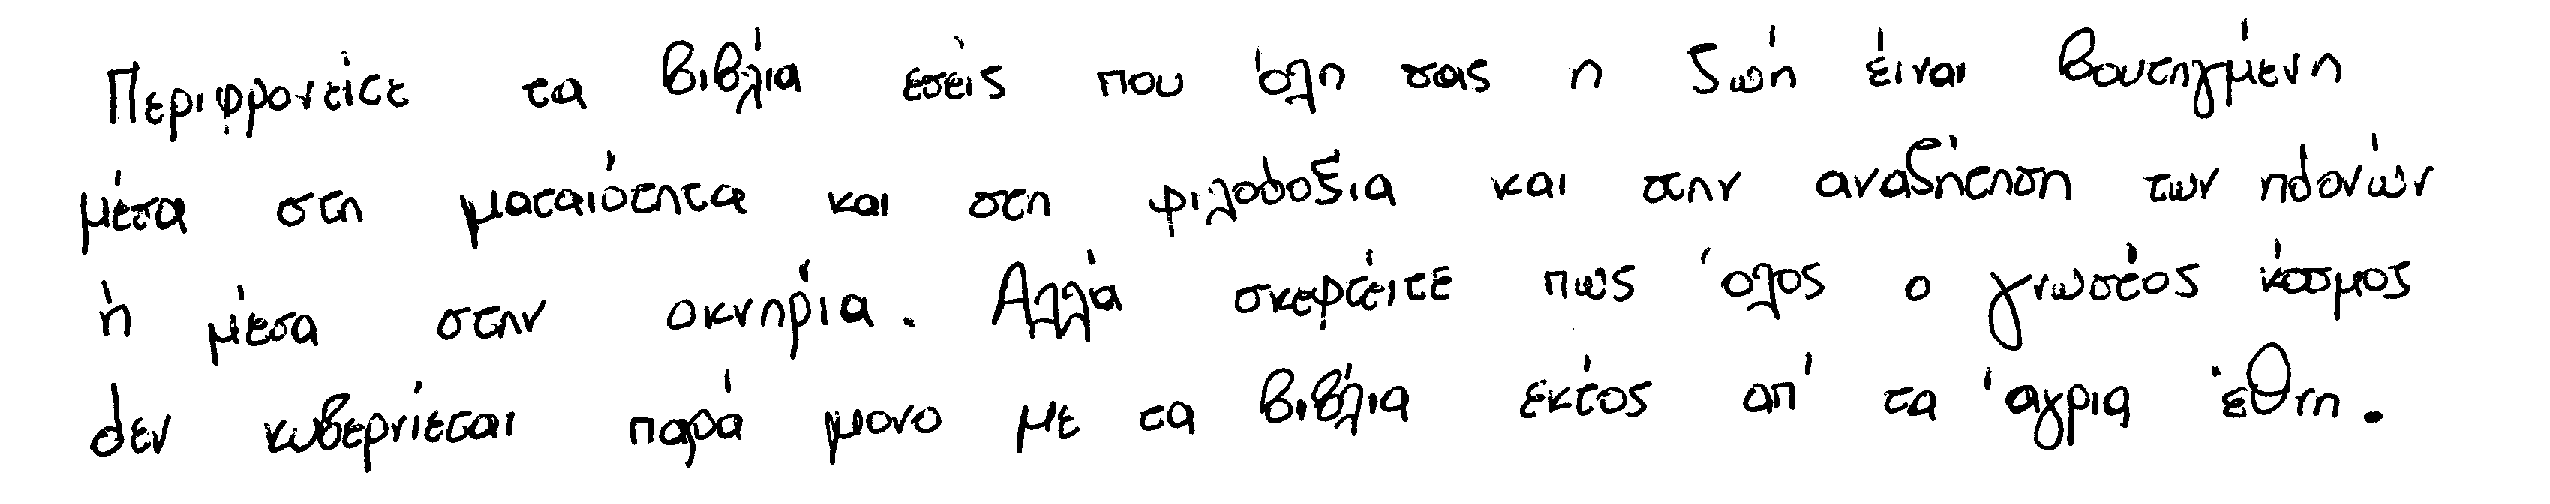 Περιφρονείτε τα βιβλία εσείς που όλη σας η ζωή είναι βουτηγμένη
μέσα στη ματαιότητα και στη φιλοδοξία και στην αναζήτηση των ηδονών
ή μέσα στην οκνηρία. Αλλά σκεφτείτε πως όλος ο γνωστός κόσμος
δεν κυβερνιέται παρά μονο με τα βιβλία εκτός απ' τα άγρια έθνη.